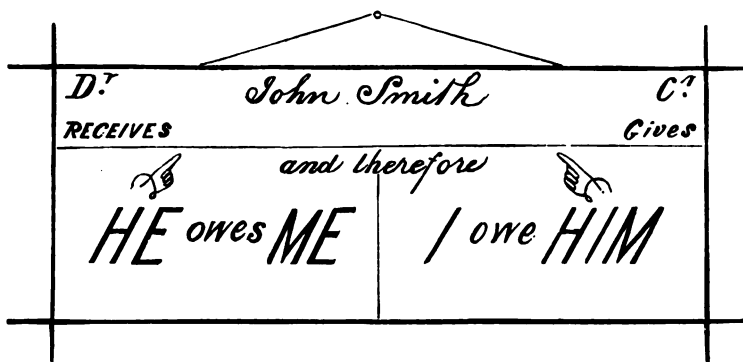 Dr. John Smith Cr.
RECEIVES Gives
and therefore
HE owes ME I owe HIM